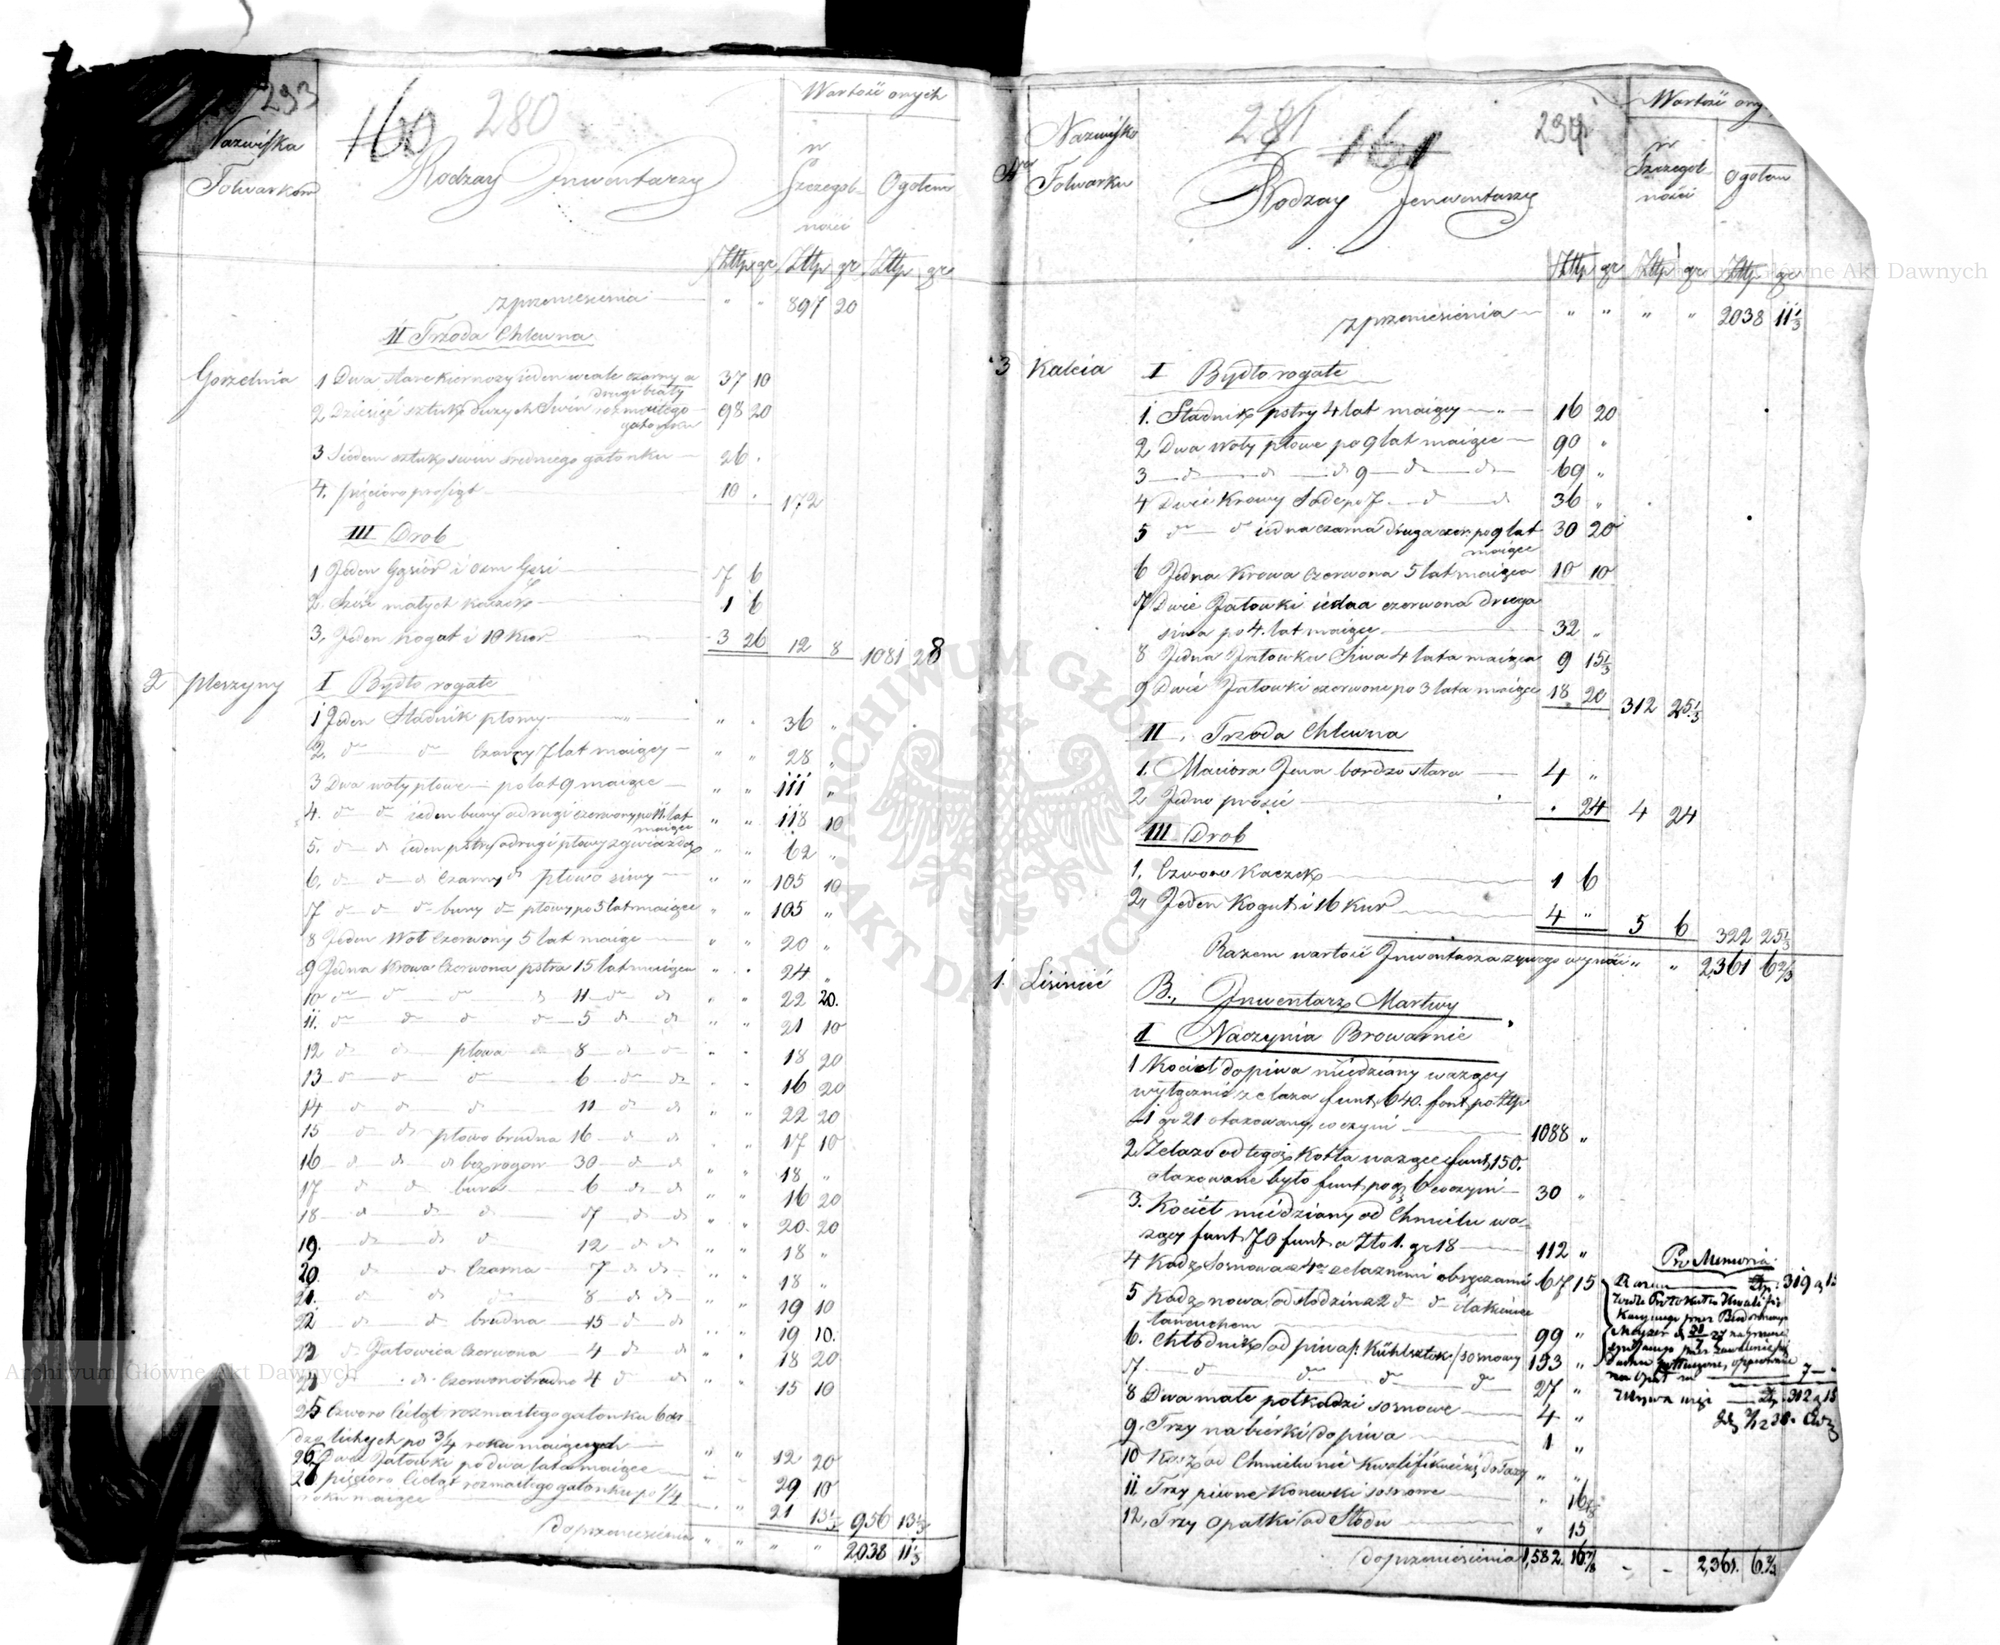 293
160
280
Nazwiska
Folwarków
Rodzay Inwentarzy
Wartość onych
w
Szczegól-
ności
Ogółem
Złłp gr Złłp gr Złłp gr
z przeniesienia — " " 897 20
II Trzoda Chlewna
Gorzelnia 1 Dwa stare kiernozy ieden wcale czarny a drugi biały 37 10
2 Dziesięć sztuk dużych Swiń rozmaitego gatonku 98 20
3 Siedem sztuk swiń sredniego gatonku — 26 .
4. pięcioro prosiąt 10 . 172
III Drob
1 Jeden Gąsior i osm Gęsi 7 6
2. Sześć małych kaczek 1 6
3. Jeden kogut i 10 kur 3 26 12 8 1081 28
2 Pleszyny I Bydło rogate
1 Jeden Stadnik płowy " . 36 "
2. do do Czarny 7 lat maiący — " " 28 "
3 Dwa woły płowe — po lat 9 maiące — " " 111 "
4. do do ieden bury a drugi czerwony po 11. lat maiące " " 118 10
5. do do ieden pstry a drugi płowy z gwiazdą " " 62 "
6. do do do Czarny do płowo siwy " " 105 10
7 do do do bury do płowy po 5 lat maiące " " 105 "
8 Jeden Woł Czerwony 5 lat maiąc " " 20 "
9 Jedna Krowa Czerwona pstra 15 lat maiąca " . 24 "
10 do do do do 11 do do " " 22 20.
11. do do do do 5 do do " " 21 10
12 do do płowa do 8 do do . . 18 20
13 do do do 6 do do . . 16 20
14 do do do 11 do do " " 22 20
15 do do płowo brudna 16 do do . " 17 10
16 do do do bez rogów 30 do do " " 18 "
17 do do bura 6 do do " " 16 20
18 do do do 7 do do " " 20. 20
19. do do do 12 do do " " 18 "
20 do do Czarna 7 do do " " 18 "
21. do do do 8 do do " " 19 10
22 do do brudna 15 do do " " 19 10.
23 do Jałowica Czerwona 4 do do " " 18 20
24 do do Czerwonobrudna 4 do do " " 15 10
25 Czworo Cieląt rozmaitego gatonku bar-
dzo lichych po 3/4 roku maiących " " 12 20
26 Dwie Jałowki po dwa lata maiące — 29 10
27 pięcioro Cieląt rozmaitego gatonku po 1/4
roku maiące " 21 13 1/3 956 13 1/3
do przeniesienia " " " " " 2038 11 1/3
281
161
294
Nro
Nazwisko
Folwarku
Rodzay Inwentarzy
Wartość ony
w
Szczegol-
ności
Ogołem
Złłp gr Złłp gr Złłp gr
z przeniesienia — " " " " 2038 11 1/3
3 Kalcia I Bydło rogate
1. Stadnik pstry 4 lat maiący 16 20
2 Dwa woły płowe po 9 lat maiące — 90 "
3 do do do 9 do do 69 "
4 Dwie Krowy po 7 do do 36 "
5 do do iedna czarna druga czer. po 9 lat maiące 30 20
6 Jedna Krowa Czerwona 5 lat maiąca 10 10
7 Dwie Jałowki iedna czerwona druga
siwa po 4. lat maiące 32 "
8 Jedna Jałowka Siwa 4 lata maiąca 9 15 1/3
9 Dwie Jałowki czerwone po 3 lata maiące 18 20 312 25 1/3
II. Trzoda Chlewna
1. Maciora Jedna bardzo stara 4 "
2 Jedno prosię . 24 4 24
III Drob
1. Czworo Kaczek 1 6
2. Jeden Kogut i 16 kur 4 " 5 6 322 25 1/3
Razem wartość Inwentarza żywego wynosi " " 2,361 6 2/3
1. Lisinić B., Inwentarz Martwy
I Naczynia Browarnie
1 Kocieł do piwa miedziany ważący
wyłącznie żelaza funt. 640. font po złłp
1 gr 21 otaxowany, co czyni 1088 "
2. Żelazo od tegoż Kotła ważące funt 150.
otaxowane było funt po gr 6 co czyni — 30 "
3. Kocieł miedziany od Chmielu wa-
żący funt. 70 funt a Zło 1. gr 18 112 "
4 Kadz sosnowa z 4ro żelaznemi obręczami 67 15
5 Kadz nowa od słodzin z 2 do do
łancuchem 99 "
6. Chłodnik od piwa p. Kühlsztok / sosnowy 193 "
7 do do do do 27 "
8 Dwa małe pół kadzi sosnowe 4 "
9. Trzy nabierki do piwa 1 "
10 Kosz od Chmielu nie kwalifikuie się do taxy " "
11 Trzy piwne Konewki sosnowe " 16
12. Trzy opałki od Słodu " 15
do przeniesienia 1,582. 16 - - 2,361. 6 2/3
Pro Memoria
Razem Złp. 319 g 15
7 —
Złp. 312 g 15
Archiwum Główne Akt Dawnych
Archiwum Główne Akt Dawnych
ARCHIWUM GŁÓWNE AKT DAWNYCH